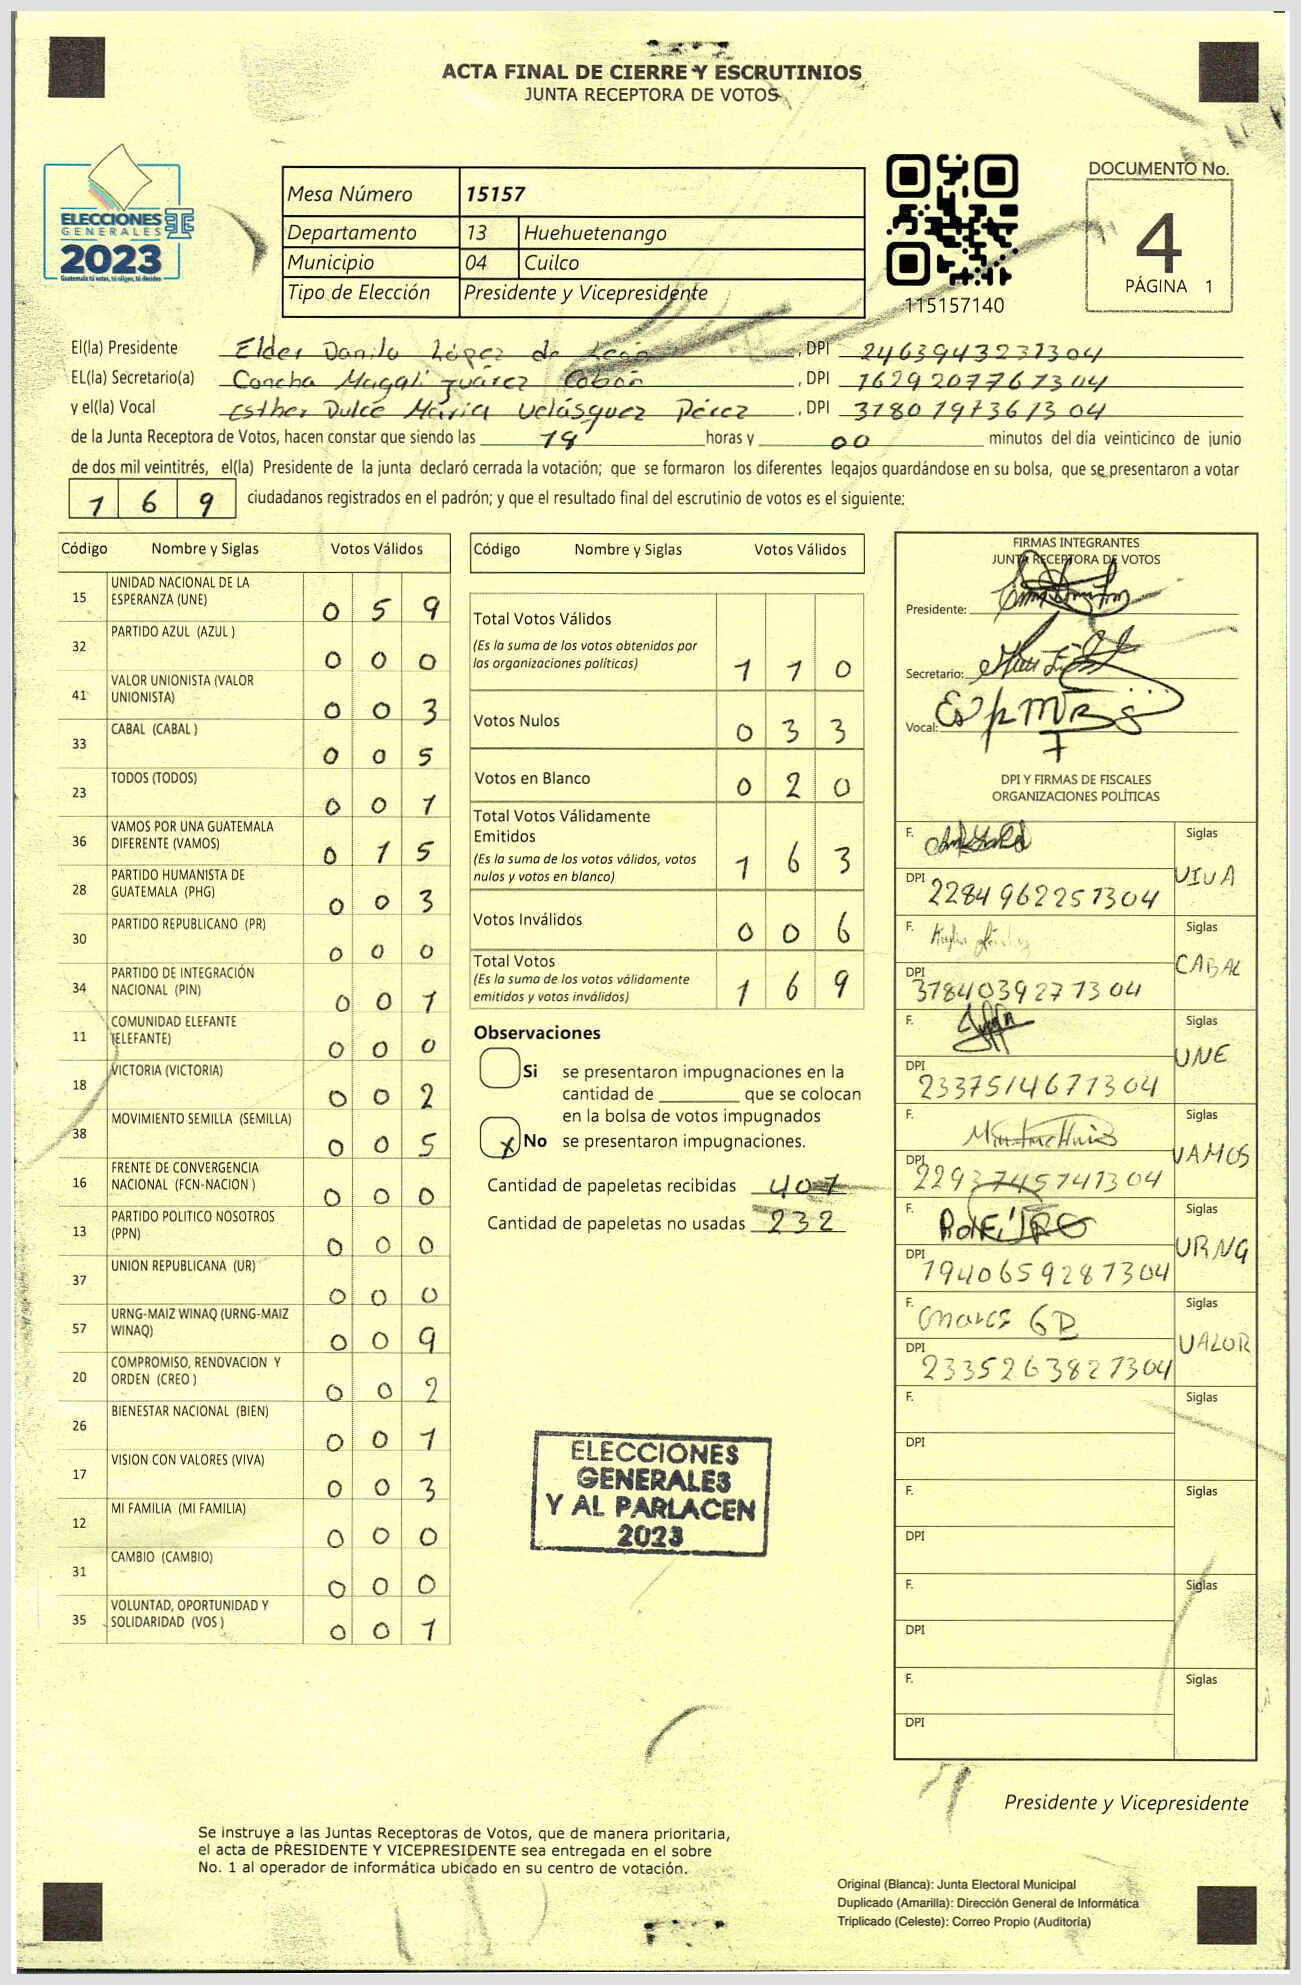 ACTA FINAL DE CIERRE Y ESCRUTINIOS
JUNTA RECEPTORA DE VOTOS
ELECCIONES
GENERALES
2023
Guatemala tú votas, tú eliges, tú decides
Mesa Número 15157
Departamento 13 Huehuetenango
Municipio 04 Cuilco
Tipo de Elección Presidente y Vicepresidente
115157140
DOCUMENTO No.
4
PÁGINA 1
El(la) Presidente Elder Danilo López de León, DPI 2463943231304
EL(la) Secretario(a) Concha Magali Juárez Cobón, DPI 1629207761304
y el(la) Vocal Esther Dulce María Velásquez Pérez, DPI 3180197361304
de la Junta Receptora de Votos, hacen constar que siendo las 18 horas y 00 minutos del día veinticinco de junio
de dos mil veintitrés, el(la) Presidente de la junta declaró cerrada la votación; que se formaron los diferentes legajos guardándose en su bolsa, que se presentaron a votar
169 ciudadanos registrados en el padrón; y que el resultado final del escrutinio de votos es el siguiente:
Código Nombre y Siglas Votos Válidos
15 UNIDAD NACIONAL DE LA ESPERANZA (UNE) 0 5 9
32 PARTIDO AZUL (AZUL ) 0 0 0
41 VALOR UNIONISTA (VALOR UNIONISTA) 0 0 3
33 CABAL (CABAL ) 0 0 5
23 TODOS (TODOS) 0 0 1
36 VAMOS POR UNA GUATEMALA DIFERENTE (VAMOS) 0 1 5
28 PARTIDO HUMANISTA DE GUATEMALA (PHG) 0 0 3
30 PARTIDO REPUBLICANO (PR) 0 0 0
34 PARTIDO DE INTEGRACIÓN NACIONAL (PIN) 0 0 1
11 COMUNIDAD ELEFANTE (ELEFANTE) 0 0 0
18 VICTORIA (VICTORIA) 0 0 2
38 MOVIMIENTO SEMILLA (SEMILLA) 0 0 5
16 FRENTE DE CONVERGENCIA NACIONAL (FCN-NACION ) 0 0 0
13 PARTIDO POLITICO NOSOTROS (PPN) 0 0 0
37 UNION REPUBLICANA (UR) 0 0 0
57 URNG-MAIZ WINAQ (URNG-MAIZ WINAQ) 0 0 9
20 COMPROMISO, RENOVACION Y ORDEN (CREO ) 0 0 2
26 BIENESTAR NACIONAL (BIEN) 0 0 1
17 VISION CON VALORES (VIVA) 0 0 3
12 MI FAMILIA (MI FAMILIA) 0 0 0
31 CAMBIO (CAMBIO) 0 0 0
35 VOLUNTAD, OPORTUNIDAD Y SOLIDARIDAD (VOS ) 0 0 1
Código Nombre y Siglas Votos Válidos
Total Votos Válidos 1 1 0
(Es la suma de los votos obtenidos por
las organizaciones políticas)
Votos Nulos 0 3 3
Votos en Blanco 0 2 0
Total Votos Válidamente
Emitidos 1 6 3
(Es la suma de los votos válidos, votos
nulos y votos en blanco)
Votos Inválidos 0 0 6
Total Votos 1 6 9
(Es la suma de los votos válidamente
emitidos y votos inválidos)
Observaciones
Si se presentaron impugnaciones en la
cantidad de ________ que se colocan
en la bolsa de votos impugnados
X No se presentaron impugnaciones.
Cantidad de papeletas recibidas 401
Cantidad de papeletas no usadas 232
ELECCIONES
GENERALES
Y AL PARLACEN
2023
FIRMAS INTEGRANTES
JUNTA RECEPTORA DE VOTOS
Presidente:
Secretario:
Vocal:
DPI Y FIRMAS DE FISCALES
ORGANIZACIONES POLÍTICAS
F. Siglas VIVA
DPI 2284962251304
F. Siglas CABAL
DPI 3784039271304
F. Siglas UNE
DPI 2337514671304
F. Siglas VAMOS
DPI 2293745741304
F. Siglas URNG
DPI 1940659281304
F. Siglas VALOR
DPI 2335263821304
F. Siglas
DPI
F. Siglas
DPI
F. Siglas
DPI
F. Siglas
DPI
Presidente y Vicepresidente
Se instruye a las Juntas Receptoras de Votos, que de manera prioritaria,
el acta de PRESIDENTE Y VICEPRESIDENTE sea entregada en el sobre
No. 1 al operador de informática ubicado en su centro de votación.
Original (Blanca): Junta Electoral Municipal
Duplicado (Amarilla): Dirección General de Informática
Triplicado (Celeste): Correo Propio (Auditoría)